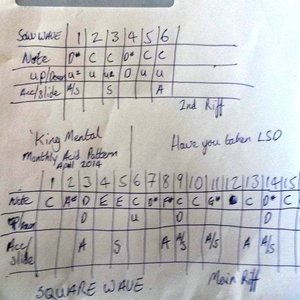 SQUARE WAVE 1 2 3 4 5 6
Note D# C C D# C C
UP/Down U² U U² D U U
Acc/Slide A/S S A
2nd Riff
'King Mental
Monthly Acid Pattern
April 2014
Have you taken LSD
1 2 3 4 5 6 7 8 9 10 11 12 13 14 15
Note C A# D E E C D# F# C C G# C C D# C
D U D D
Acc/slide A S A A/S A/S A A/S
SQUARE WAVE.
Main Riff